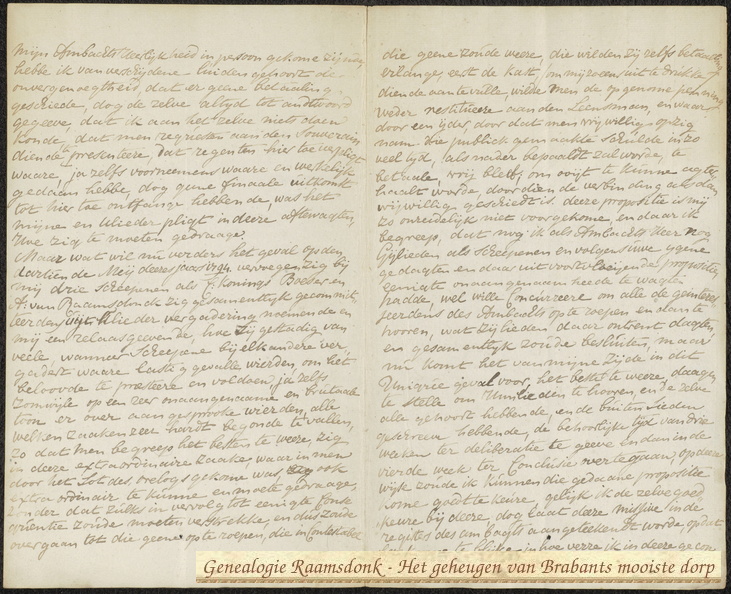 mijn Ambachts Heerlijkheid in persoon gekome zijnde
hebbe ik van verscheijdene luiden gehoort de
onvergenoegtheid, dat er gene betaaling
geschiede, dog de zelve altijd tot andtwoord
gegeeve, dat ik aan het zelve niets doen
konde, dat men requesten aan den Souverain
diende te presenteere, dat regenten hier toe verpligt
waare, ja zelfs voorneemens waare en werkelijk
gedaan hebbe, dog gene finaale uitkomst
tot hier toe ontfange hebbende was het
mijne en Ulieder pligt in deere aftewagten,
hoe zig te moeten gedraage.
Maar wat wil nu verders het geval op den
dartiende Meij deeses jaars 1794. vervoegen zig bij
mij drie Scheepenen als J. Konings Boeser en
A: van Raamsdonck zig gesamentlijk gecommit
teerden uijt Ulieder vergadering noemende en
mij een relaas gevende, hoe zij gestadig van
veele wanneer Scheepene bij elkandere ver
gadert waare lastig gevalle wierden, om het
beloovde te presteere en voldoen, ja zelfs
zomwijle op een zeer onaangenaame en brutaale
toon er over aangesprooke wierden, alle
welken zaaken zeer hardt begonde te vallen,
zo dat men begreep het beste te weese, zig
in deeze extraordinaire zaake, waar in men
door het Lot des Oorlogs gekome was, ook
extra ordinair te kunne en moete gedraage,
zonder dat zulks in vervolg tot eenigte Conse
quentie zoude moeten verstrekke, en dus zoude
overgaan tot die geene op te roepen, die
die geene zoude weere, die wilden zij zelfs betaaling
erlangen, eerst de kast, om mij zoo eens uit te drukken
diende aan te vulle, wilde men de opgenome penningen
weder restitueere aan den Landsman, en waar
door een ijder, door dat men vrijwillig opzig
nam die publick gemaakte schulde in zo
veel tijd, als nader bepaaldt zal worde, te
betaale, vrij bleef, om ooijt te kunne agter
haalt worde, door dien de verbinding als dan
vrijwillig geschiedt is. deere propositie is mij
zo onreidelijk niet voorgekome, en daar ik
begreep, dat nog ik als Ambachts Heer nog
Gijlieden als Scheepenen en volgens uwe eigene
gedagten en daar uit voortvloeijende propositie
geenigte onaangenaam heede te wagten
hadde, wel wille Concurreere om alle de geinteres
seerdens des Ambachts op te roepen en dan te
hooren, wat zij lieden daar ontrent dagten,
en gesamentlijk zoude besluiten, maar
nu komt het van mijne zijde in dit
Unigrie geval voor, het beste te weere, daagen
te stelle om Hunlieden te hooren, en de zelve
alle gehoort hebbende, en de buiten Lieden
geschreeven hebbende, de behoorlijk tijd van drie
weeken ter deliberatie te geeve en dan in de
vierde week ter Conclusie over te gaan, op wat
wijk zonde ik kunnen die gedaane propositie
kome goedt te keure, gelijk ik de zelve goed
keure bij deere, dog laat deere missive in de
registers des ambachts aangeteekendt worde, opdat
hoe verre ik in deere gecon
Genealogie Raamsdonk - Het geheugen van Brabants mooiste dorp